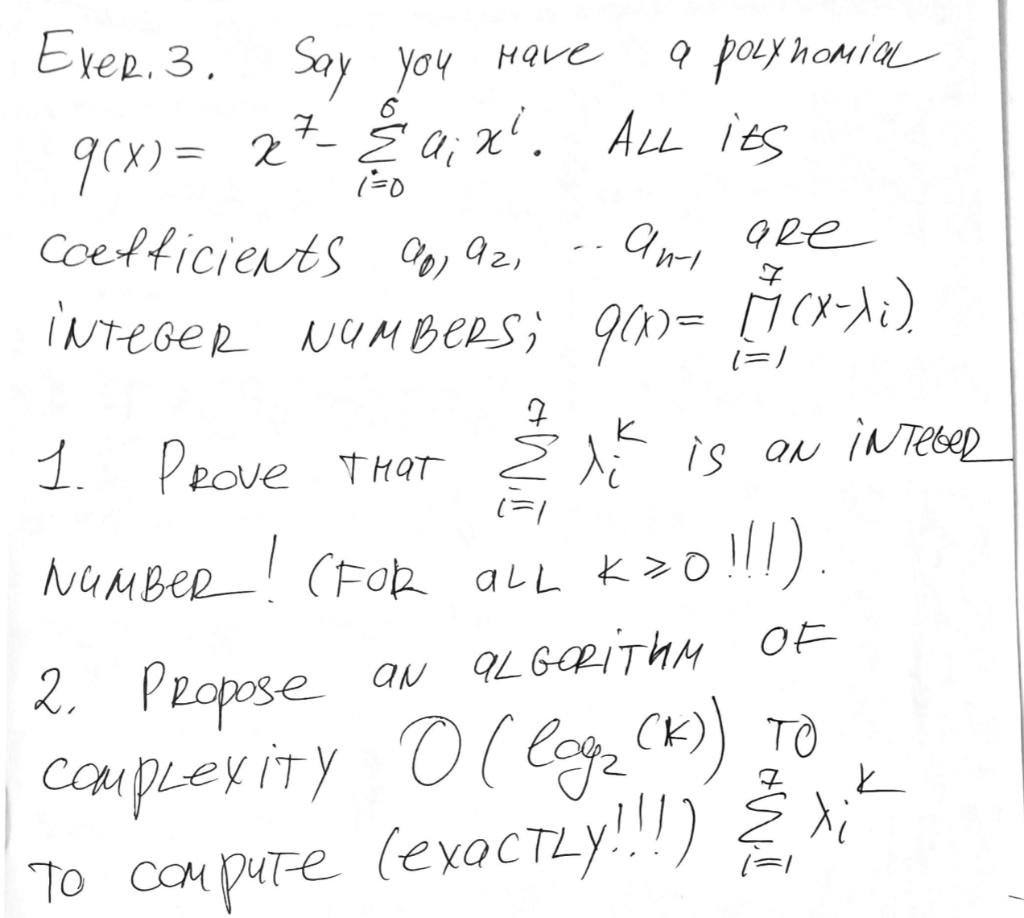 Exer. 3. Say you have a polynomial
q(x) = x^7 - Σ_{i=0}^{6} a_i x^i. All its
coefficients a_0, a_2, .. a_{n-1} are
integer numbers; q(x) = Π_{i=1}^{7} (x-λ_i).
1. Prove that Σ_{i=1}^{7} λ_i^k is an integer
number! (for all k ≥ 0 !!!).
2. Propose an algorithm of
complexity O(log_2(k)) to
to compute (exactly!!!) Σ_{i=1}^{7} λ_i^k